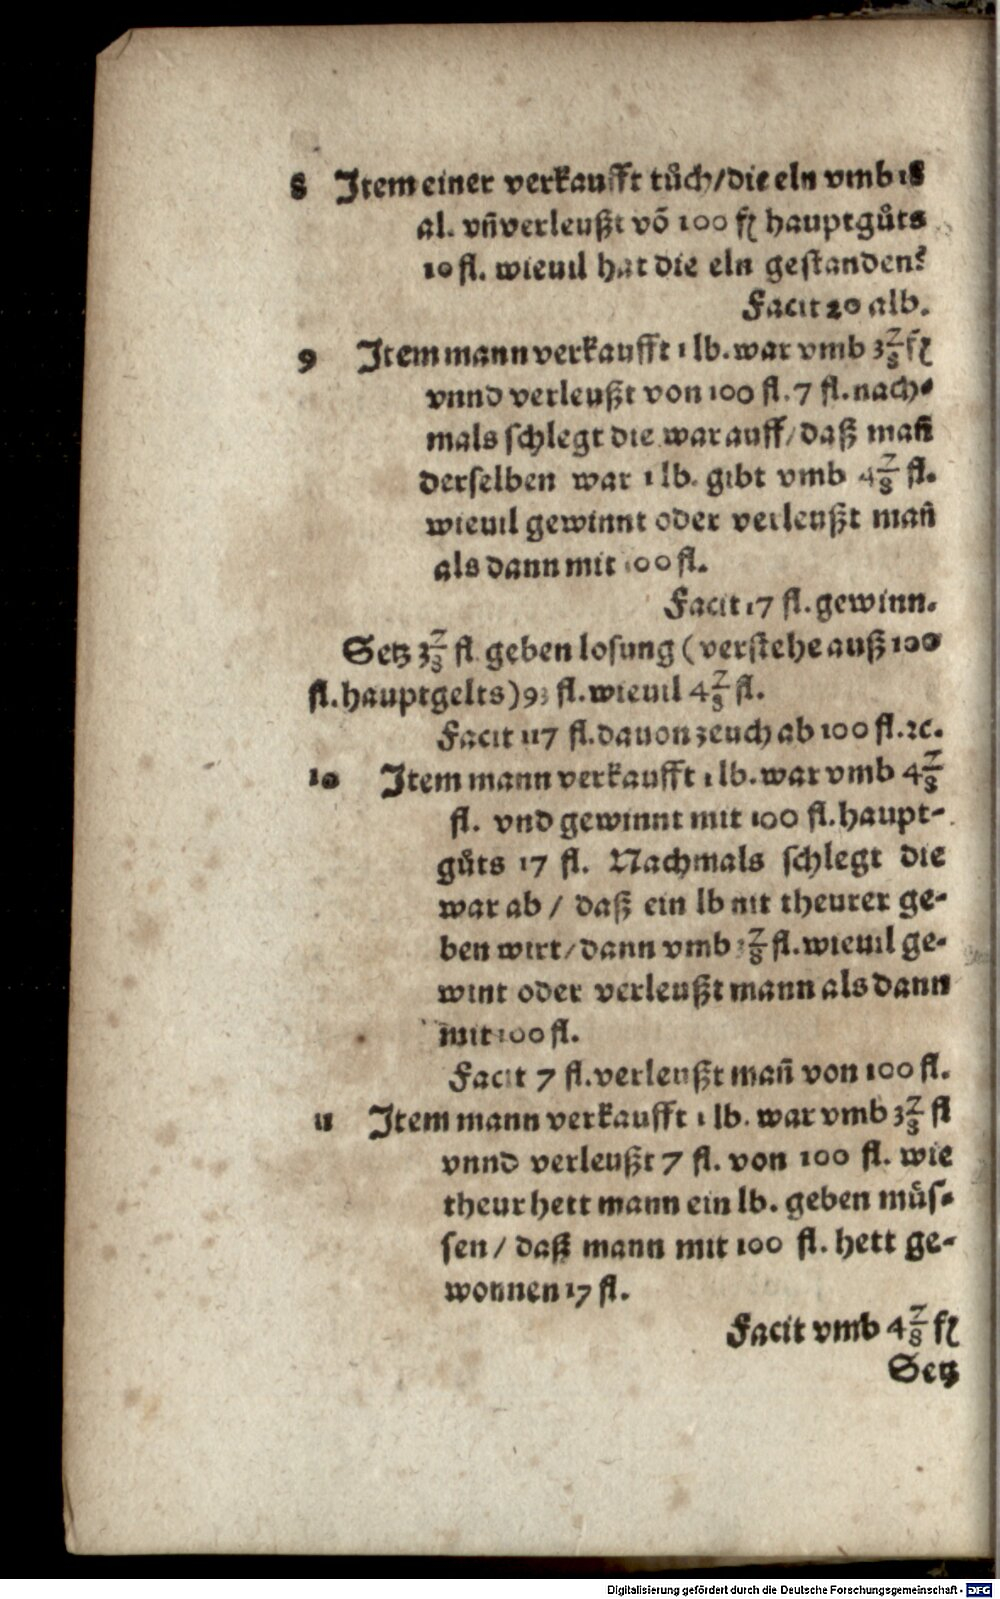 8 Item einer verkaufft tůch/die eln vmb 18
al. vn̄ verleußt võ 100 fl hauptgůts
10 fl. wieuil hat die eln gestanden?
Facit 20 alb.
9 Item mann verkaufft 1 lb. war vmb 3 7/8 fl
vnnd verleußt von 100 fl. 7 fl. nach-
mals schlegt die war auff/ daß man̄
derselben war 1 lb. gibt vmb 4 7/8 fl.
wieuil gewinnt oder verleußt man̄
als dann mit 100 fl.
Facit 17 fl. gewinn.
Setz 3 7/8 fl geben losung (verstehe auß 100
fl. hauptgelts) 93 fl. wieuil 4 7/8 fl.
Facit 117 fl. dauon zeuch ab 100 fl. ꝛc.
10 Item mann verkaufft 1 lb. war vmb 4 7/8
fl. vnd gewinnt mit 100 fl. haupt-
gůts 17 fl. Nachmals schlegt die
war ab / daß ein lb nit theurer ge-
ben wirt/ dann vmb 3 7/8 fl. wieuil ge-
wint oder verleußt mann als dann
mit 100 fl.
Facit 7 fl. verleußt man̄ von 100 fl.
11 Item mann verkaufft 1 lb. war vmb 3 7/8 fl
vnnd verleußt 7 fl. von 100 fl. wie
theur hett mann ein lb. geben můs-
sen / daß mann mit 100 fl. hett ge-
wonnen 17 fl.
Facit vmb 4 7/8 fl
Setz
Digitalisierung gefördert durch die Deutsche Forschungsgemeinschaft - DFG